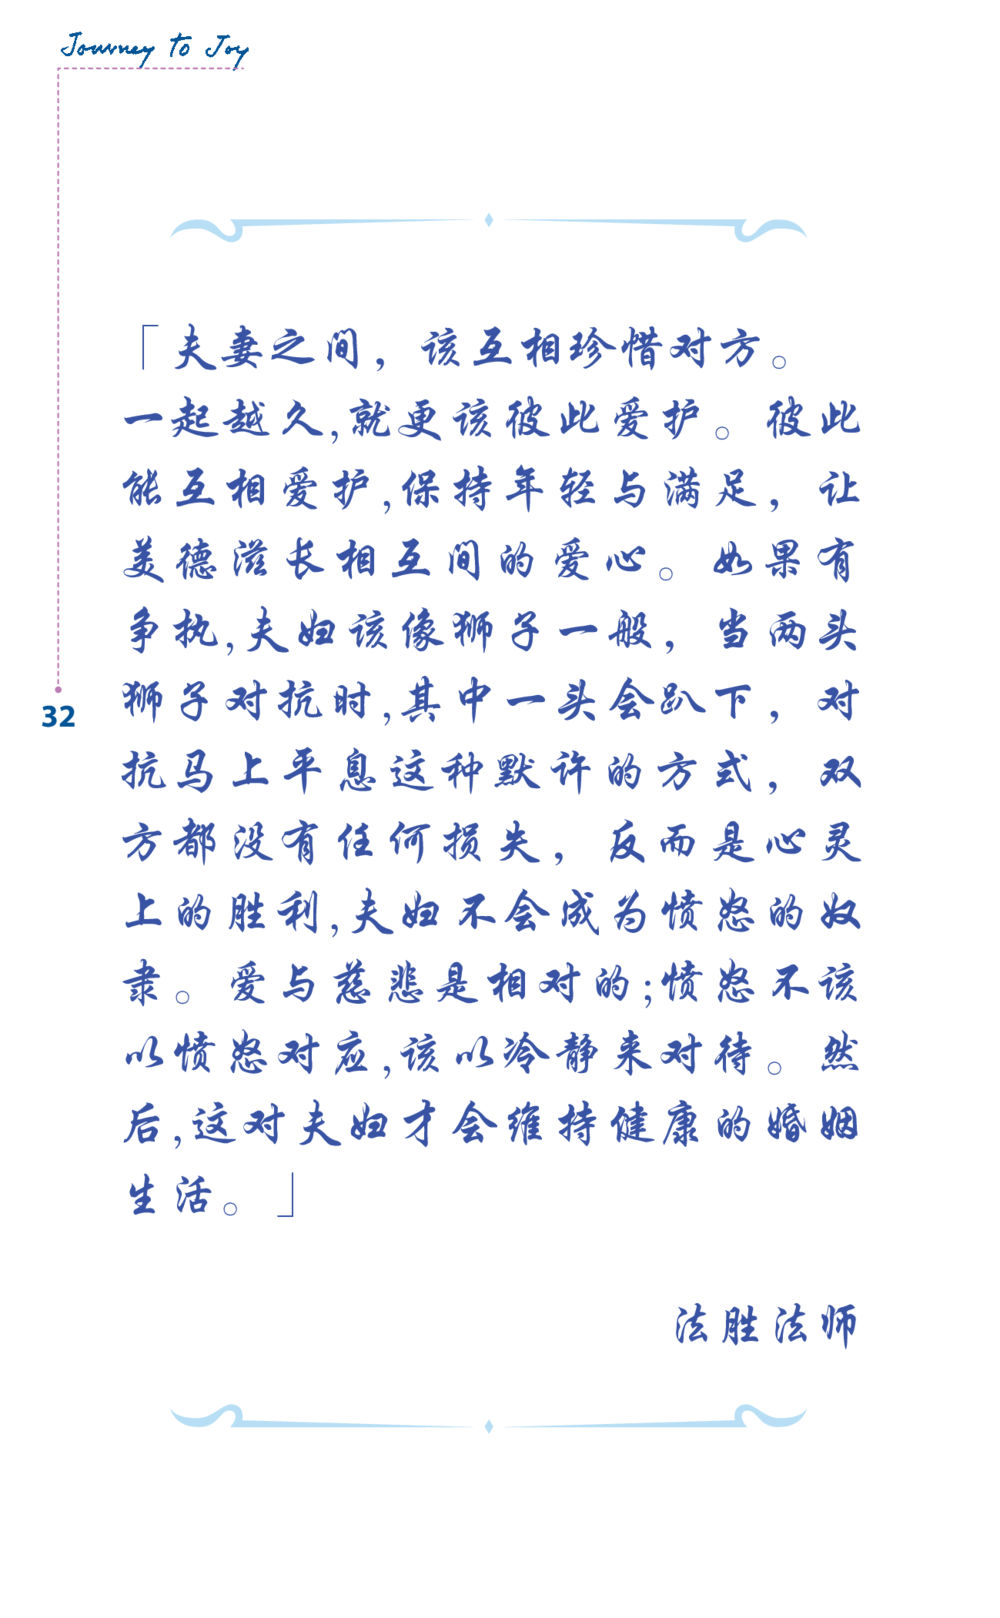 Journey to Joy
「夫妻之间，该互相珍惜对方。
一起越久,就更该彼此爱护。彼此
能互相爱护,保持年轻与满足，让
美德滋长相互间的爱心。如果有
争执,夫妇该像狮子一般，当两头
狮子对抗时,其中一头会趴下，对
抗马上平息这种默许的方式，双
方都没有任何损失，反而是心灵
上的胜利,夫妇不会成为愤怒的奴
隶。爱与慈悲是相对的;愤怒不该
以愤怒对应,该以冷静来对待。然
后,这对夫妇才会维持健康的婚姻
生活。」
法胜法师
32